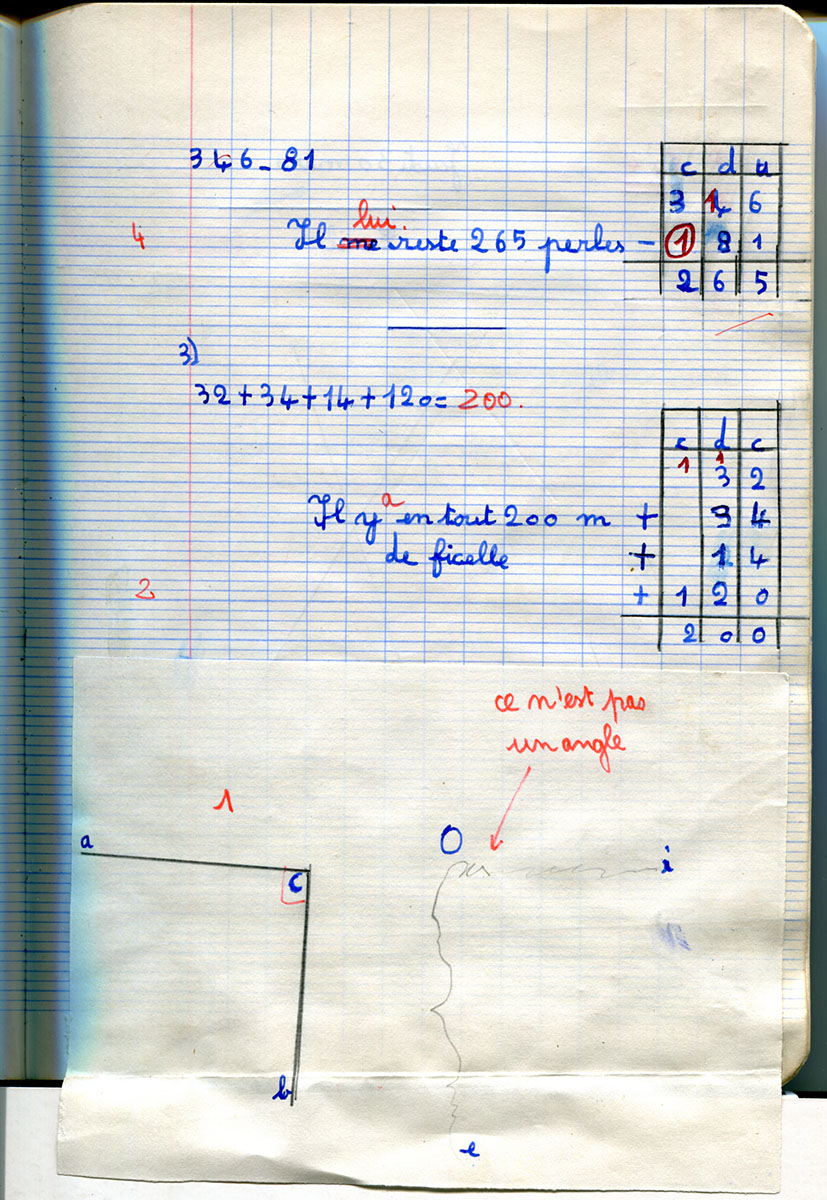 346-81
c d u
3 14 6
4
lui.
Il me reste 265 perles - 1 8 1
2 6 5
3)
32+34+14+120= 200.
c d c
1 1
3 2
a
Il y en tout 200 m + 3 4
de ficelle + 1 4
2
+ 1 2 0
2 0 0
ce n'est pas
un angle
1
a
O
i
c
b
e